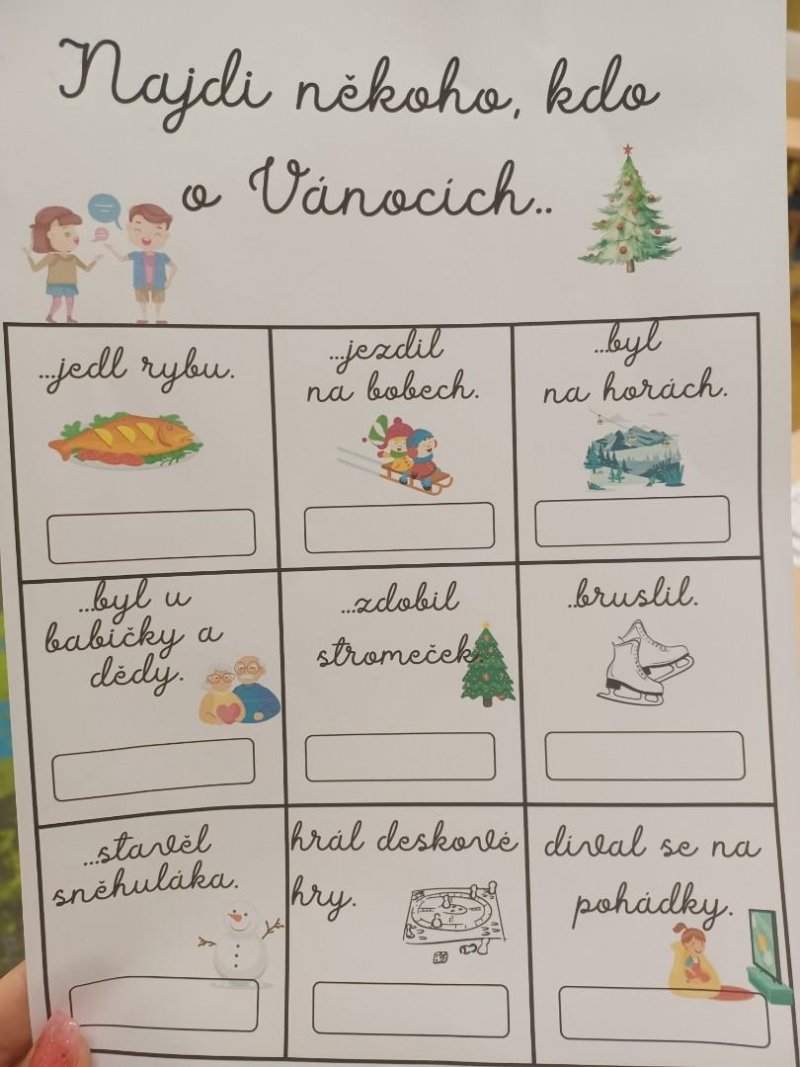 Najdi někoho, kdo
o Vánocích..
...jedl rybu.
...jezdil
na bobech.
...byl
na horách.
...byl u
babičky a
dědy.
...zdobil
stromeček.
..bruslil.
...stavěl
sněhuláka.
hrál deskové
hry.
díval se na
pohádky.